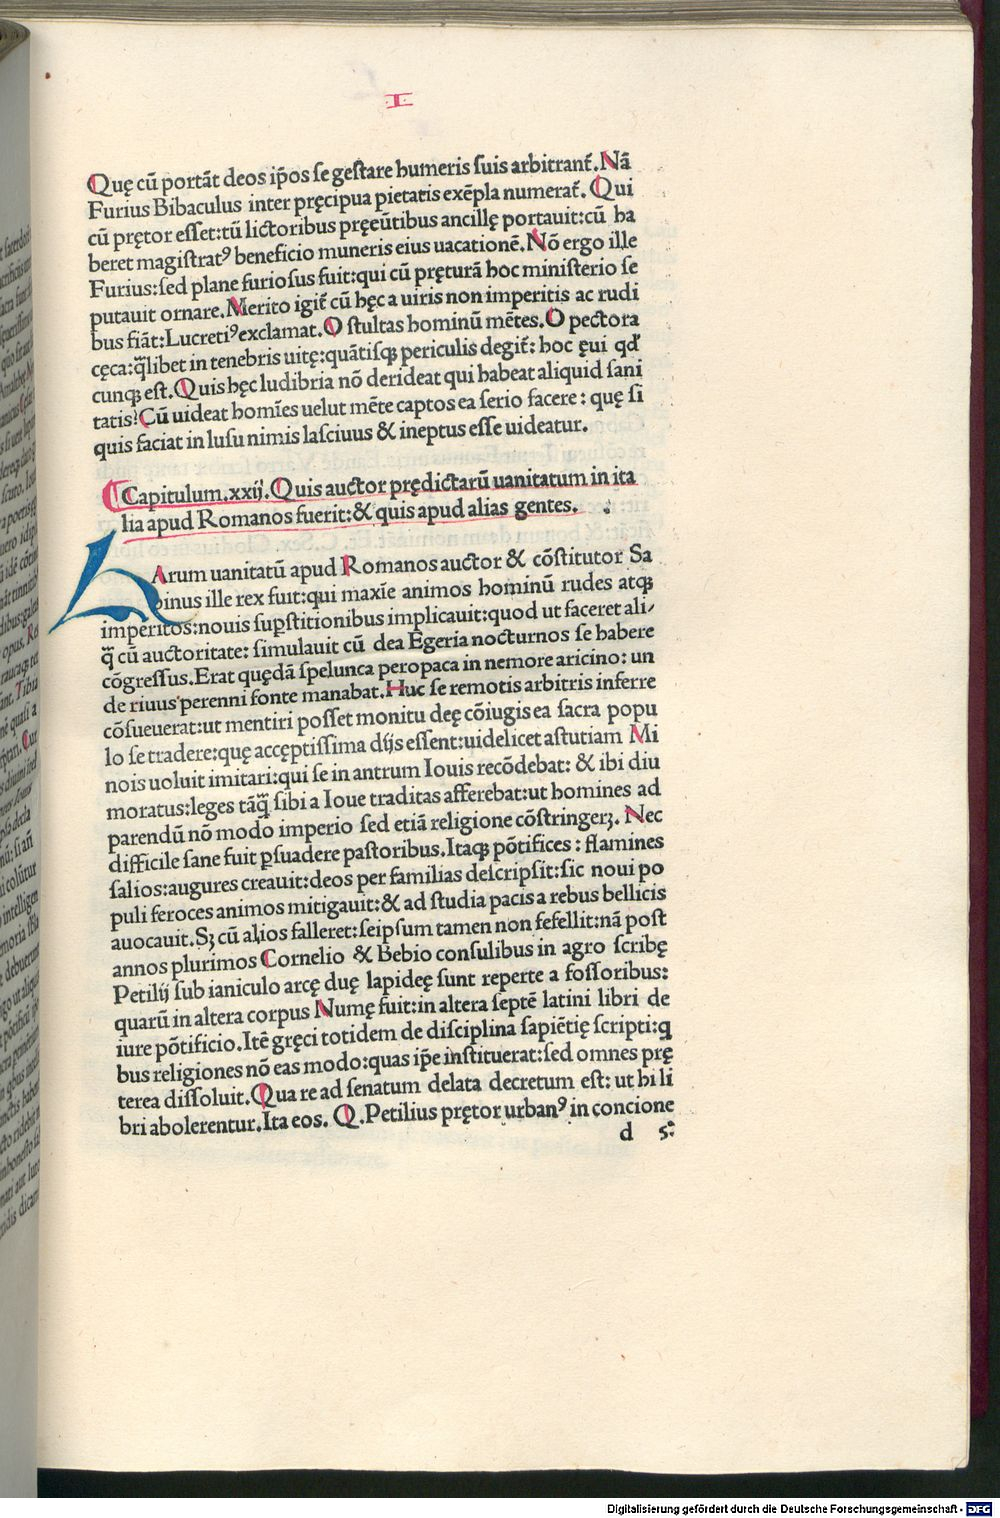 I
Quę cū portāt deos ip̄os se gestare humeris suis arbitrant̄. Nā
Furius Bibaculus inter pręcipua pietatis exēpla numerat̄. Qui
cū prętor esset: tū lictoribus pręeūtibus ancillę portauit: cū ha
beret magistratꝰ beneficio muneris eius uacationē. Nō ergo ille
Furius: sed plane furiosus fuit: qui cū pręturā hoc ministerio se
putauit ornare. Merito igit̄ cū hęc a uiris non imperitis ac rudi
bus fiāt: Lucretiꝰ exclamat. O stultas hominū mētes. O pectora
cęca: q̄libet in tenebris uitę: quātisq; periculis degit̄: hoc ęui qd̄
cunq; est. Quis hęc ludibria nō derideat qui habeat aliquid sani
tatis? Cū uideat homīes uelut mēte captos ea serio facere: quę si
quis faciat in lusu nimis lasciuus & ineptus esse uideatur.
Capitulum. xxij. Quis auctor prędictarū uanitatum in ita
lia apud Romanos fuerit: & quis apud alias gentes.
HArum uanitatū apud Romanos auctor & cōstitutor Sa
binus ille rex fuit: qui maxīe animos hominū rudes atq;
imperitos: nouis suꝑstitionibus implicauit: quod ut faceret ali/
q̄ cū auctoritate: simulauit cū dea Egeria nocturnos se habere
cōgressus. Erat quędā spelunca peropaca in nemore aricino: un
de riuus perenni fonte manabat. Huc se remotis arbitris inferre
cōsueuerat: ut mentiri posset monitu deę cōiugis ea sacra popu
lo se tradere: quę acceptissima dijs essent: uidelicet astutiam Mi
nois uoluit imitari: qui se in antrum Iouis recōdebat: & ibi diu
moratus: leges tāq̄ sibi a Ioue traditas afferebat: ut homines ad
parendū nō modo imperio sed etiā religione cōstringerꝫ. Nec
difficile sane fuit ꝑsuadere pastoribus. Itaq; pōtifices: flamines
salios: augures creauit: deos per familias descripsit: sic noui po
puli feroces animos mitigauit: & ad studia pacis a rebus bellicis
auocauit. Sꝫ cū alios falleret: seipsum tamen non fefellit: nā post
annos plurimos Cornelio & Bebio consulibus in agro scribę
Petilij sub ianiculo arcę duę lapideę sunt reperte a fossoribus:
quarū in altera corpus Numę fuit: in altera septē latini libri de
iure pōtificio. Itē gręci totidem de disciplina sapiētię scripti: q
bus religiones nō eas modo: quas ip̄e instituerat: sed omnes prę
terea dissoluit. Qua re ad senatum delata decretum est: ut hi li
bri abolerentur. Ita eos. Q. Petilius prętor urbanꝰ in concione
d 5
Digitalisierung gefördert durch die Deutsche Forschungsgemeinschaft - DFG